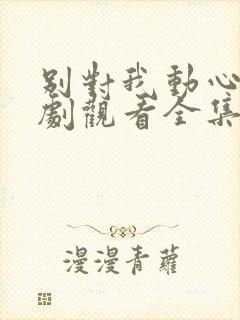 別對我動心
劇觀看全集
漫漫青蘿